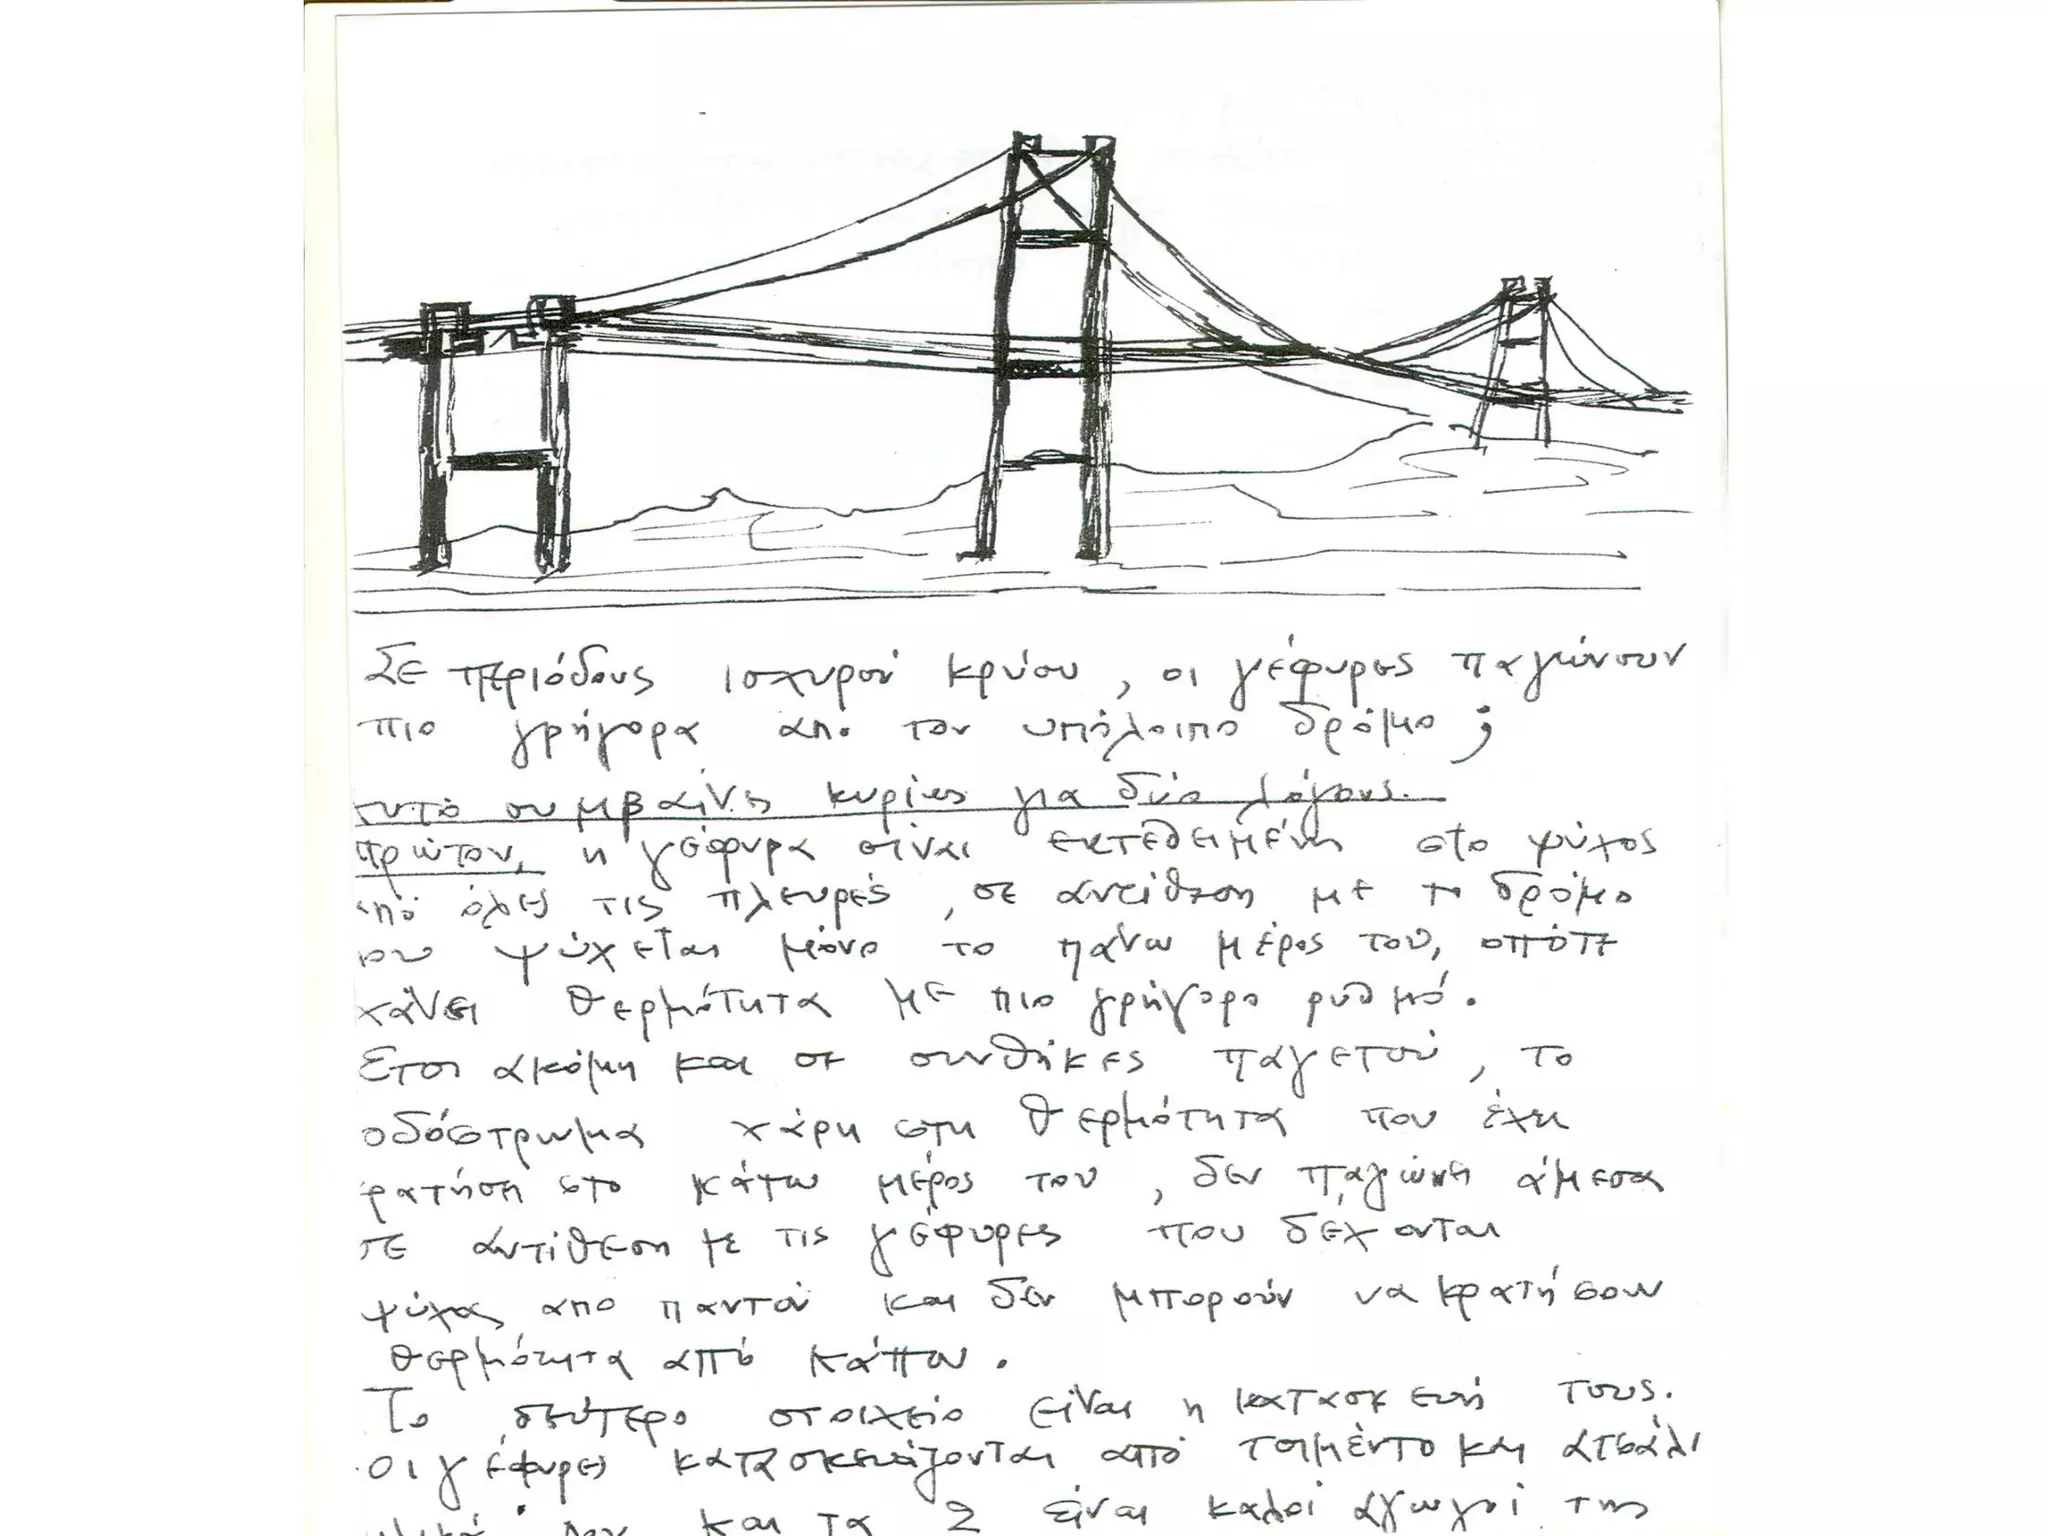 Σε περιόδους ισχυρού κρύου, οι γέφυρες παγώνουν
πιο γρήγορα απο τον υπόλοιπο δρόμο;
αυτό συμβαίνει κυρίως για δύο λόγους.
πρώτον, η γέφυρα είναι εκτεθειμένη στο ψύχος
από όλες τις πλευρές, σε αντίθεση με το δρόμο
που ψύχεται μόνο το πάνω μέρος του, οπότε
χάνει θερμότητα με πιο γρήγορο ρυθμό.
Ετσι ακόμη και σε συνθήκες παγετού, το
οδόστρωμα χάρη στη θερμότητα που έχει
κρατήσει στο κάτω μέρος του, δεν παγώνει άμεσα
σε αντίθεση με τις γέφυρες που δέχονται
ψύχος απο παντού και δεν μπορούν να κρατήσουν
θερμότητα από κάπου.
Το δεύτερο στοιχείο είναι η κατασκευή τους.
Οι γέφυρες κατασκευάζονται από τσιμέντο και ατσάλι
και τα 2 είναι καλοί αγωγοί της